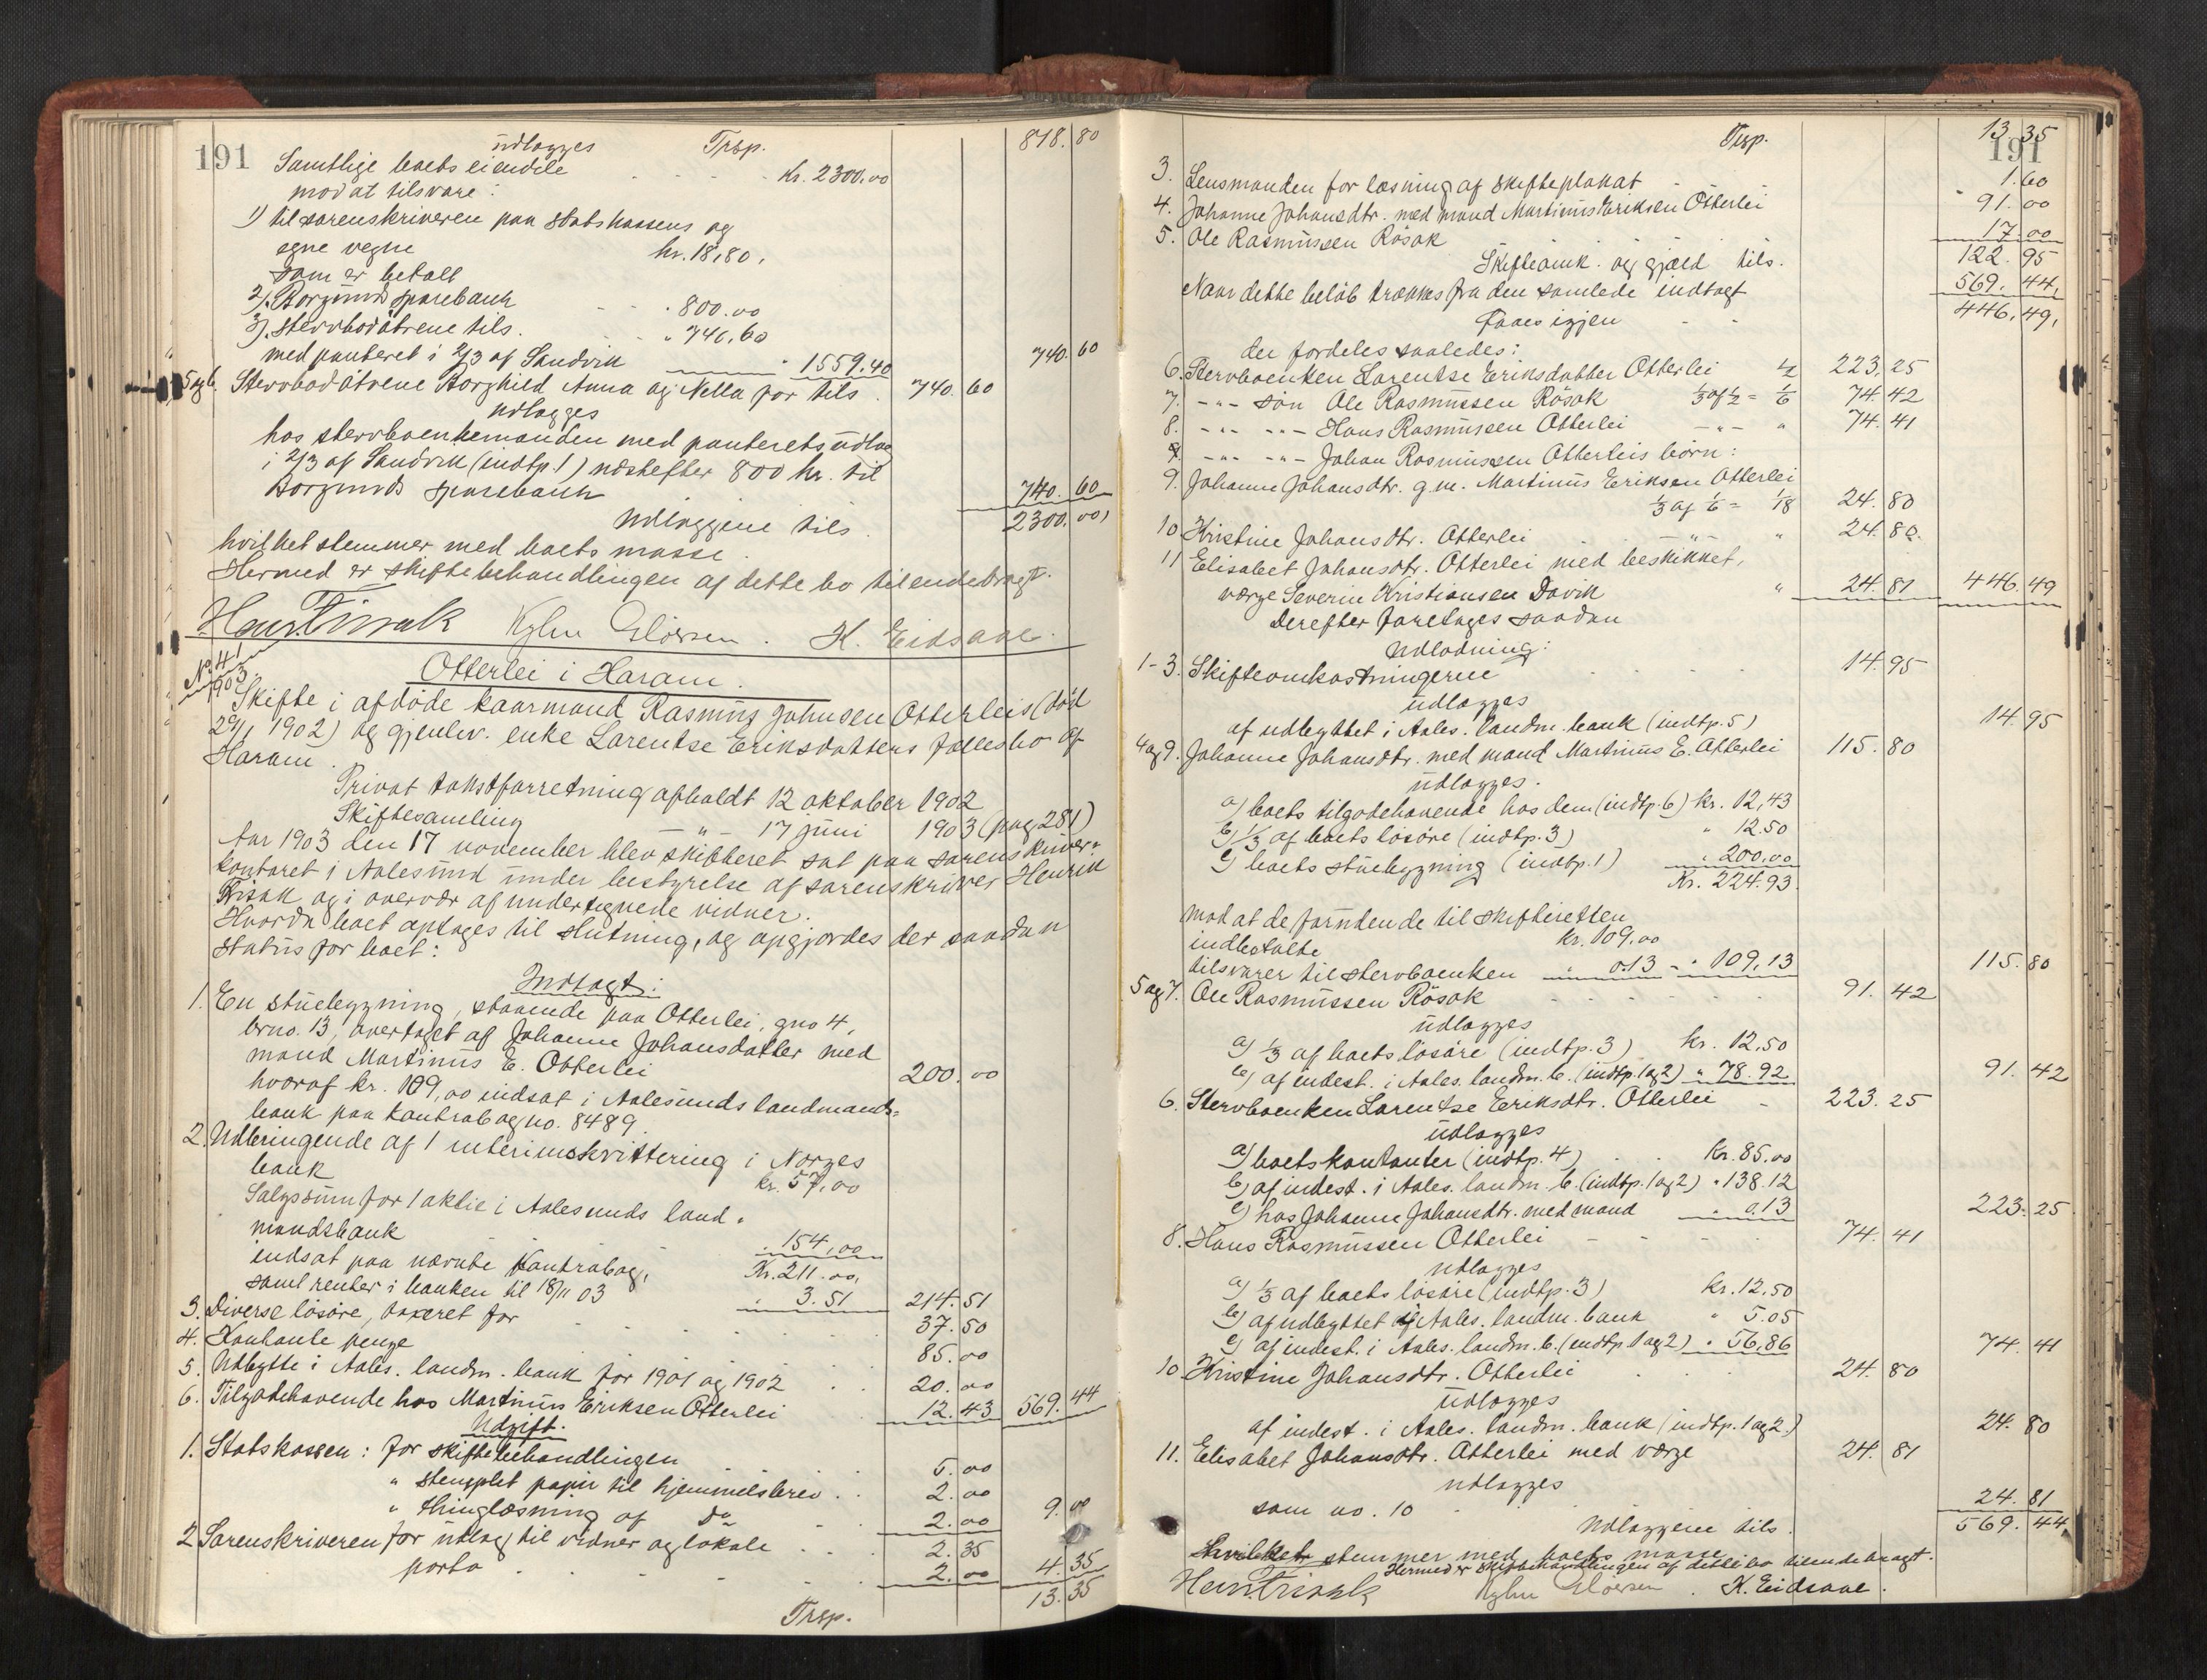 191
udlægges Trsp. 818.80
Samtlige boets eiendele kr. 2300,00
mod at tilsvare:
1) til sorenskriveren paa statskassens og
egne vegne kr. 18,80,
som er betalt
2) Borgunds sparebank " 800.00
3) stervbodøtrene tils. " 740,60
med panteret i 2/3 af Sandvik " 1559.40 740.60
5 og 6. Stervbodøtrene Borghild Anna og Nella for tils. 740.60
udlægges
hos stervboenkemanden med panterets udlæg
i 2/3 af Sandvik (indtp. 1) næstefter 800 kr. til
Borgunds sparebank 740.60
Udlæggene tils. 2300.00,
hvilket stemmer med boets masse.
Hermed er skiftebehandlingen af dette bo tilendebragt.
Hen. Finsak K. Eidsaae.
No. 41
1903
Otterlei i Haram.
Skifte i afdøde kaarmand Rasmus Johnsen Otterleis (død
29/1 1902) og gjenlev. enke Larentse Eriksdatters fællesbo af
Haram.
Privat takstforretning afholdt 12 oktober 1902
Skiftesamling " 17 juni 1903 (pag 281)
Aar 1903 den 17 november blev skifteret sat paa sorenskriver-
kontoret i Aalesund under bestyrelse af sorenskriver Henrik
Finsak og i overvær af undertegnede vidner.
Hvorda boet optages til slutning, og opgjordes der saadan
status for boet:
Indtægt:
1. En stuebygning, staaende paa Otterlei, gno 4,
brno. 13, overtaget af Johanne Johansdatter med
mand Martinus E. Otterlei 200.00
hvoraf kr. 109,00 indsat i Aalesunds landmands-
bank paa kontrabog no. 8489.
2. Udbringende af 1 interimskvittering i Norges
bank kr. 57,00
Salgssum for 1 aktie i Aalesunds land-
mandsbank " 154,00
indsat paa nævnte kontrabog, Kr. 211.00,
samt renter i banken til 18/11 03 " 3.51 214.51
3. Diverse løsøre, takseret for 37.50
4. Kontante penge 85.00
5. Udbytte i Aales. landm. bank for 1901 og 1902 20.00
6. Tilgodehavende hos Martinus Eriksen Otterlei 12.43 569.44
Udgift.
1. Statskassen: for skiftebehandlingen 5.00
" stemplet papir til hjemmelsbrev 2.00
" thinglæsning af do 2.00 9.00
2. Sorenskriveren for udlæg til vidner og lokale 2.35
porto 2.00 4.35
Trsp. 13.35
191
Trsp. 13.35
3. Lensmanden for læsning af skifteplakat 1.60
4. Johanne Johansdtr. med mand Martinus Eriksen Otterlei 91.00
5. Ole Rasmussen Røsok 17.00
Skifteomk. og gjæld tils. 122.95
Naar dette beløb trækkes fra den samlede indtægt 569.44,
faaes igjen 446.49,
der fordeles saaledes:
6. Stervboenken Larentse Eriksdatter Otterlei 1/2 223.25
7. -"- søn Ole Rasmussen Røsok 1/3 af 1/2 = 1/6 74.42
8. -"- -"- Hans Rasmussen Otterlei -"- " 74.41
-"- -"- Johan Rasmussen Otterleis børn:
9. Johanne Johansdtr. g.m. Martinus Eriksen Otterlei
1/3 af 1/6 = 1/18 24.80
10 Kristine Johansdtr. Otterlei " " 24.80.
11 Elisabet Johansdtr. Otterlei med beskikket,
værge Severin Kristiansen Davik " 24.81 446.49
Derefter foretages saadan
Udlodning:
1-3. Skifteomkostningerne 14.95
udlægges
af udbyttet i Aales. landm. bank (indtp. 5) 14.95
4 og 9. Johanne Johansdtr. med mand Martinus E. Otterlei 115.80
udlægges.
a) boets tilgodehavende hos dem (indtp. 6) kr. 12,43
b) 1/3 af boets løsøre (indtp. 3) " 12.50
c) boets stuebygning (indtp. 1) " 200,00
Kr. 224.93.
mod at de foruden de til skifteretten
indbetalte kr. 109.00
tilsvarer til stervboenken " 0.13 - " 109,13 115.80
5 og 7. Ole Rasmussen Røsok 91.42
udlægges
a) 1/3 af boets løsøre (indtp. 3) kr. 12,50
b) af indest. i Aales. landm. b. (indtp. 1 og 2) " 78.92 91.42
6. Stervboenken Larentse Eriksdtr. Otterlei 223.25
udlægges
a) boets kontanter (indtp. 4) Kr. 85.00
b) af indest. i Aales. landm. b. (indtp. 1 og 2) " 138.12
c) hos Johanne Johansdtr. med mand " 0.13 223.25
8. Hans Rasmussen Otterlei 74.41
udlægges
a) 1/3 af boets løsøre (indtp. 3) kr. 12.50
b) af udbyttet i Aales. landm. bank " 5.05
c) af indest. i Aales. landm. b. (indtp. 1 og 2) " 56,86 74.41
10. Kristine Johansdtr. Otterlei 24.80
udlægges
af indest. i Aales. landm. bank (indtp. 1 og 2.) 24.80
11. Elisabet Johansdtr. Otterlei med værge 24.81
udlægges
som no. 10 24.81
Udlæggene tils. 569.44
Hvilket stemmer med boets masse
Hermed er skiftebehandlingen af dette bo tilendebragt.
Hen. Finsak K. Eidsaae.